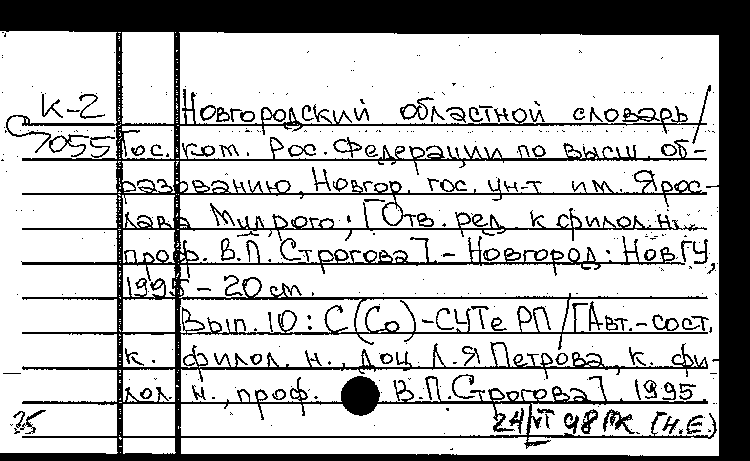 К-2 Новгородский областной словарь /
С7055 Гос. ком. Рос. Федерации по высш. об-
разованию, Новгор. гос. ун-т им. Ярос-
лава Мудрого; [Отв. ред. к филол. н.,
проф. В.П. Строгова]. - Новгород: НовГУ,
1995 - 20 см.
Вып. 10: С(Со)-СУТЕРП / [Авт.-сост.
к. филол. н., доц Л.Я Петрова, к. фи-
лол н., проф. В.П. Строгова]. 1995
35 24/VI 98 (Н.Е.)